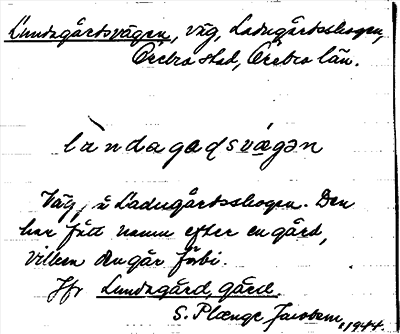 Lundagårdsvägen, väg, Ladugårdsskogen,
Örebro stad, Örebro län.
lùndagaɖsvægən
Väg i Ladugårdsskogen. Den
har fått namn efter en gård,
vilken den går förbi.
Jfr Lundagård, gård.
S. Plænge Jacobson, 1944.